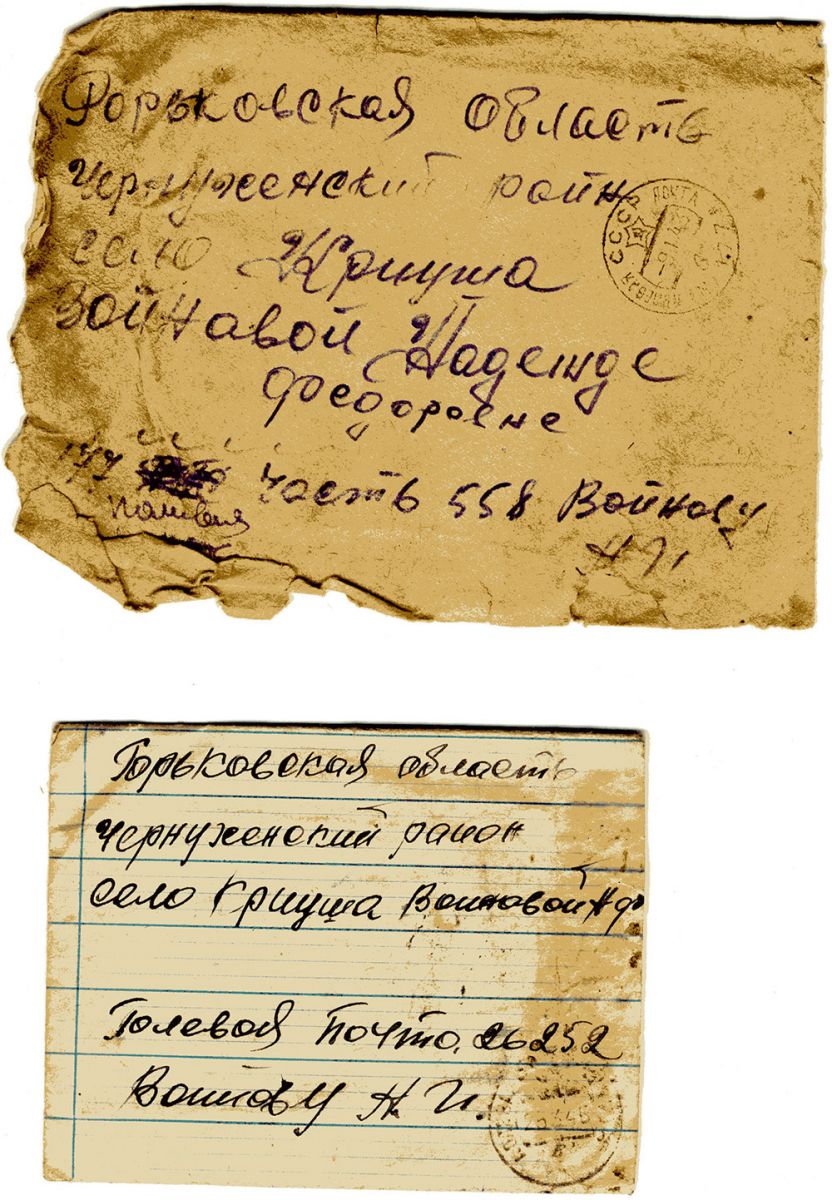 Горьковская область
Чернуженский район
село Криуша
Войновой Надежде
Федоровне
часть 558 Войнову
Н И
СССР ПОЧТА
Горьковская область
Чернуженский район
село Криуша Войновой Н Ф
Полевая Почто. 26252
Войнову Н. И.